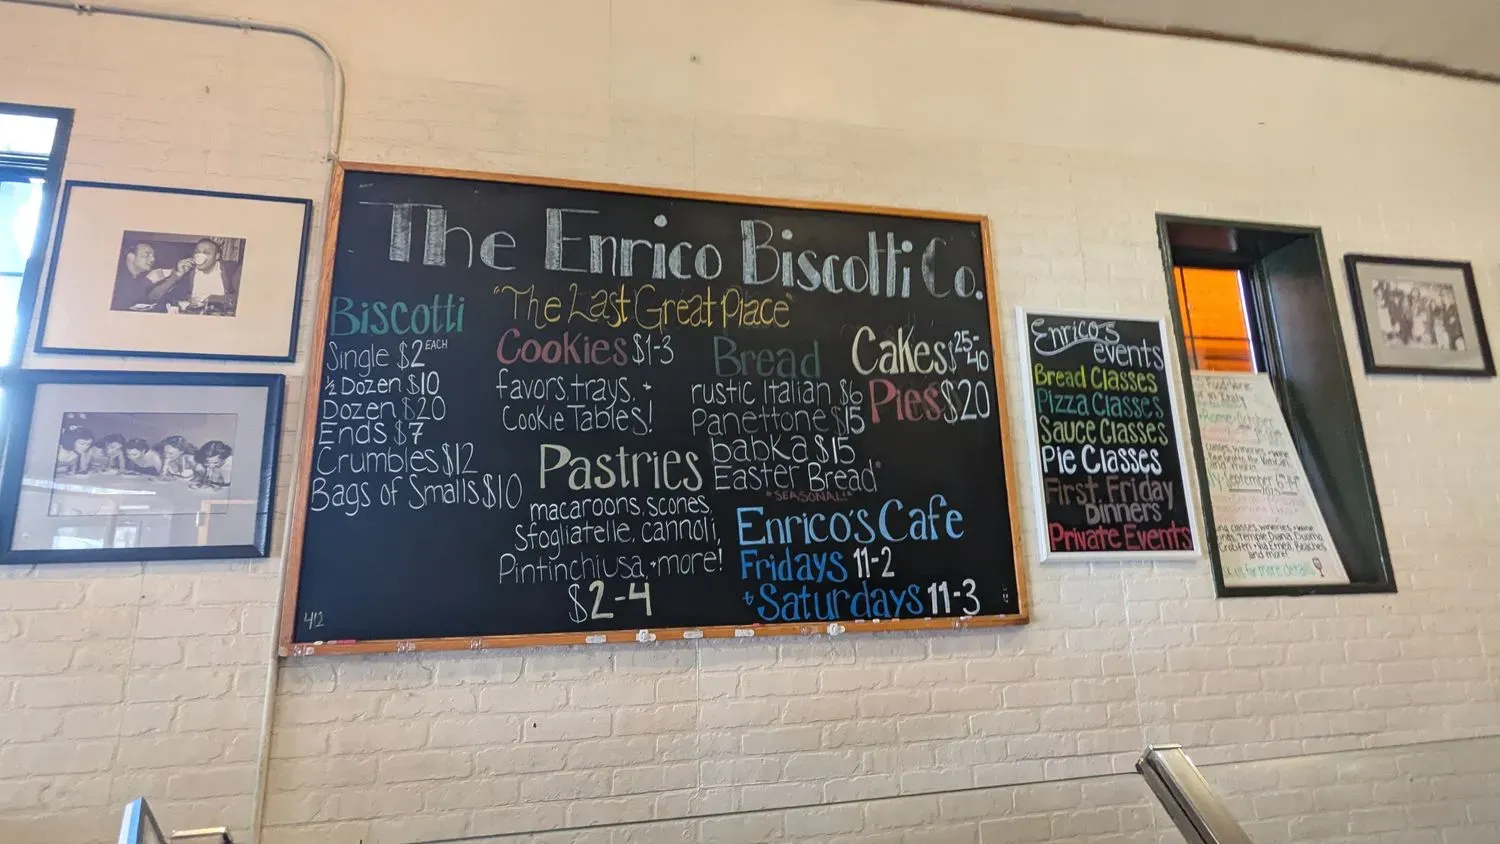 The Enrico Biscotti Co.
"The Last Great Place"
Biscotti
Single $2 EACH
½ Dozen $10
Dozen $20
Ends $7
Crumbles $12
Bags of Smalls $10
412
Cookies $1-3
favors, trays, +
Cookie Tables!
Pastries
macaroons, scones,
Sfogliatelle, cannoli,
Pintinchiusa, + more!
$2-4
Bread
rustic Italian $6
Panettone $15
babka $15
Easter Bread
"SEASONAL!"
Cakes $25-40
Pies $20
Enrico's Cafe
Fridays 11-2
+ Saturdays 11-3
Enrico's
events
Bread Classes
Pizza Classes
Sauce Classes
Pie Classes
First Friday
Dinners
Private Events
Food + Wine
in Italy
Rome October
September 6th
and more!
Temple Diana, Duomo
Beaches
and more!
for more details